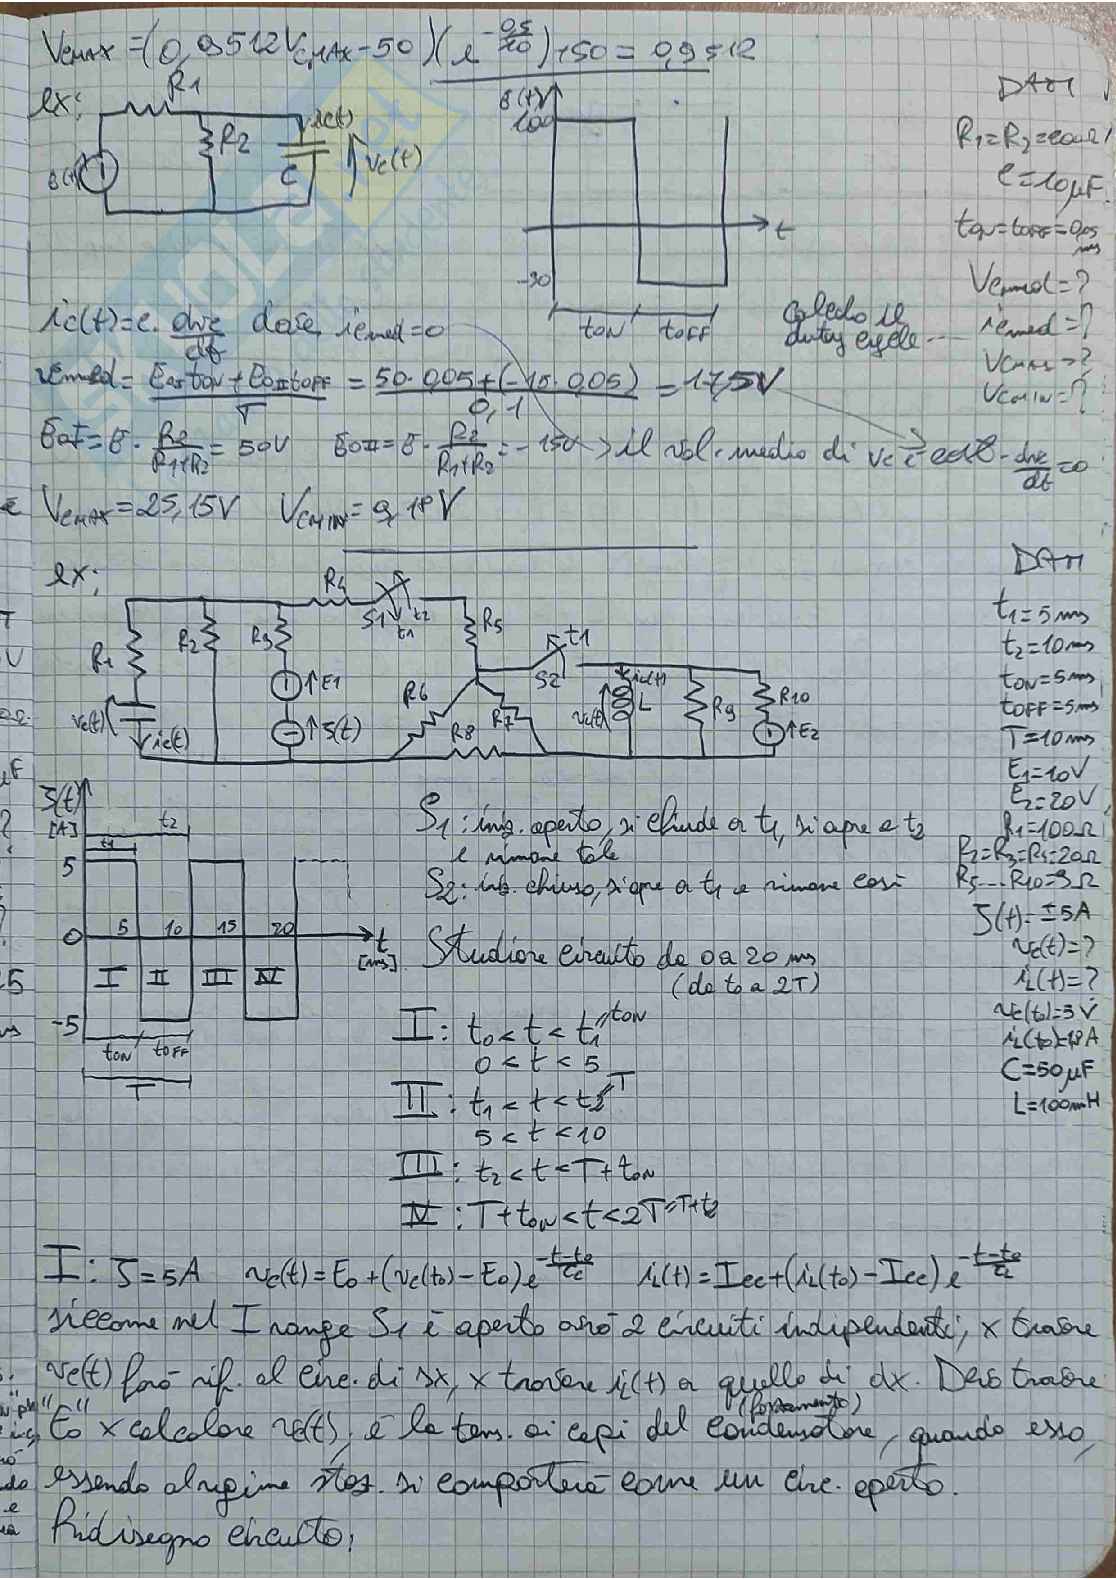 VCMAX = (0,9512VCMAX-50)(e^-0,5/10)+50 = 0,9512
ex:
R1
R2
ic(t)
vc(t)
C
E(t)
E(t)
100
-30
t
tON
tOFF
DATI
R1=R2=200Ω
C=10μF
tON=tOFF=0,05 ms
VCmed=?
icmed=?
VCMAX=?
VCMIN=?
Calcolo il duty cycle
ic(t)=C·dvc/dt dove icmed=0
vcmed= (E0I tON+E0II tOFF)/T = (50·0,05+(-15·0,05))/0,1 = 17,5V
E0I=E·R2/(R1+R2)=50V E0II=E·R2/(R1+R2)=-15V → il val. medio di vc è cost C·dvc/dt=0
VCMAX=25,15V VCMIN=9,18V
ex:
R4
S1
t1
t2
R5
R1
R2
R3
E1
J(t)
vc(t)
ic(t)
R6
R7
R8
S2
t1
iL(t)
L
R9
R10
E2
DATI
t1=5ms
t2=10ms
tON=5ms
tOFF=5ms
T=10ms
E1=10V
E2=20V
R1=100Ω
R2=R3=R4=20Ω
R5...R10=3Ω
J(t)=±5A
vc(t)=?
iL(t)=?
vc(t0)=3V
C=50μF
L=100mH
J(t)
[A]
t2
t1
5
0
5 10 15 20
t
[ms]
I II III IV
-5
tON tOFF
T
S1: iniz. aperto, si chiude a t1, si apre a t2
e rimane tale
S2: iniz. chiuso, si apre a t1 e rimane così
Studiare circuito da 0 a 20 ms
(da t0 a 2T)
I: t0<t<t1=tON
0<t<5
II: t1<t<t2=T
5<t<10
III: t2<t<T+tON
IV: T+tON<t<2T=T+t2
I: J=5A vc(t)=E0+(vc(t0)-E0)e^-(t-t0)/τc iL(t)=Icc+(iL(t0)-Icc)e^-(t-t0)/τL
siccome nel I range S1 è aperto avrò 2 circuiti indipendenti, x trovare
vc(t) farò rif. al circ. di sx, x trovare iL(t) a quello di dx. Devo trovare
E0 x calcolare vc(t), è la tens. ai capi del condensatore, quando esso,
essendo a regime staz. si comporterà come un circ. aperto.
Ridisegno circuito: